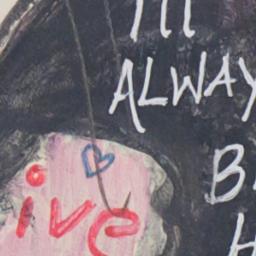 I'll
ALWAY
B
H
ive